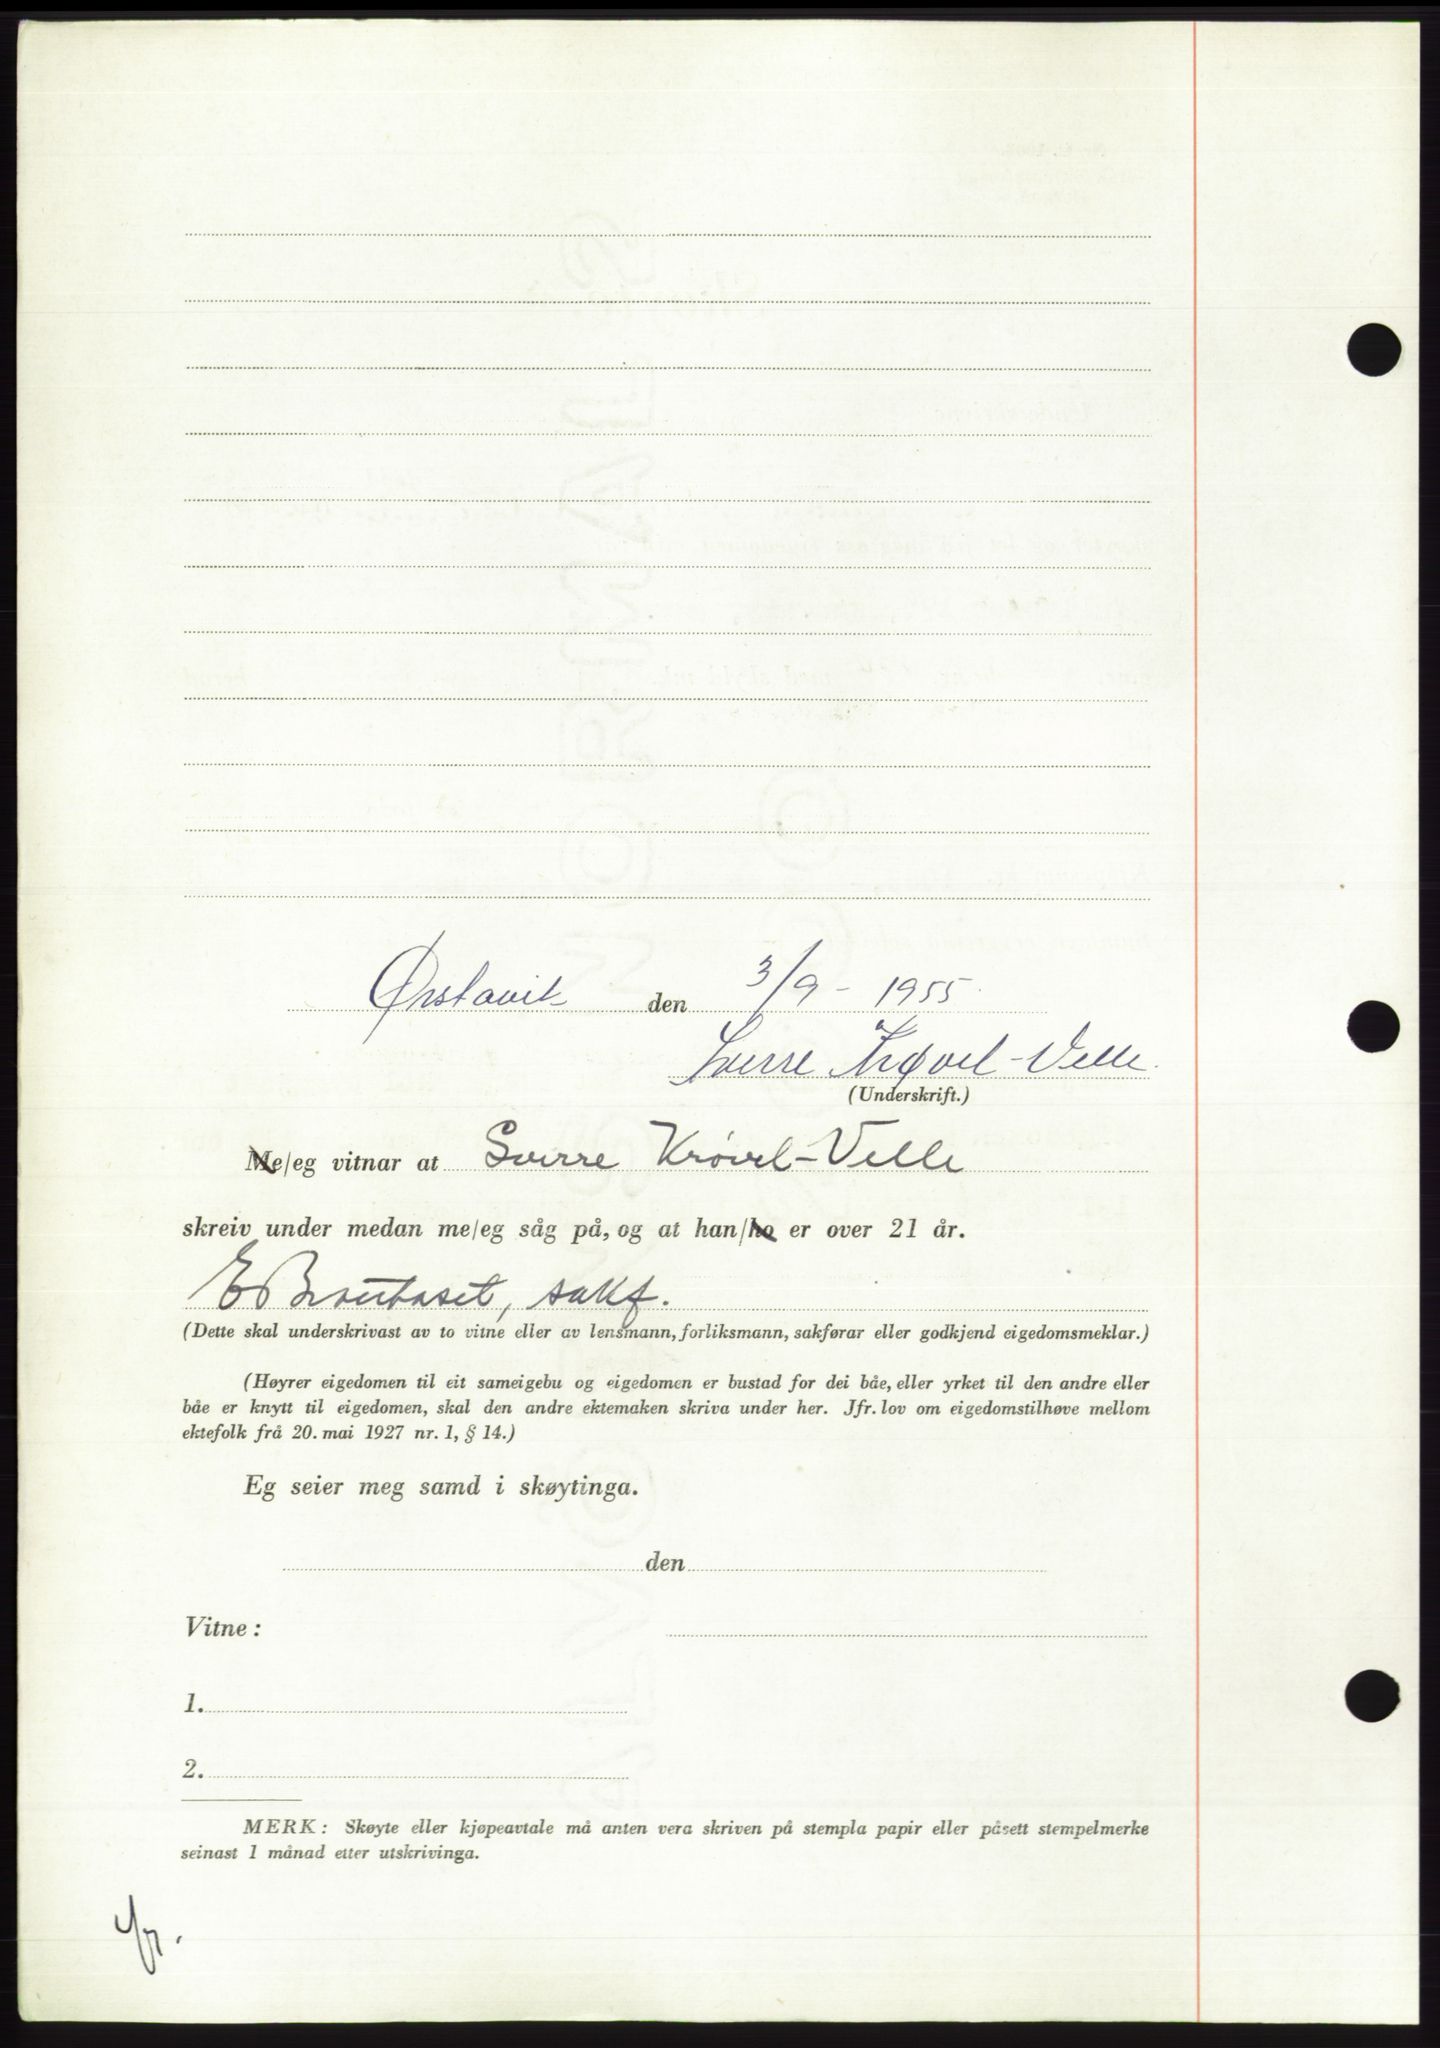 Ørstavik den 3/9 - 1955.
Sverre Krøvel-Velle.
(Underskrift.)
Me/eg vitnar at Sverre Krøvel-Velle
skreiv under medan me/eg såg på, og at han/ho er over 21 år.
sakf.
(Dette skal underskrivast av to vitne eller av lensmann, forliksmann, sakførar eller godkjend eigedomsmeklar.)
(Høyrer eigedomen til eit sameigebu og eigedomen er bustad for dei båe, eller yrket til den andre eller
båe er knytt til eigedomen, skal den andre ektemaken skriva under her. Jfr. lov om eigedomstilhøve mellom
ektefolk frå 20. mai 1927 nr. 1, § 14.)
Eg seier meg samd i skøytinga.
den
Vitne:
1.
2.
MERK: Skøyte eller kjøpeavtale må anten vera skriven på stempla papir eller påsett stempelmerke
seinast 1 månad etter utskrivinga.